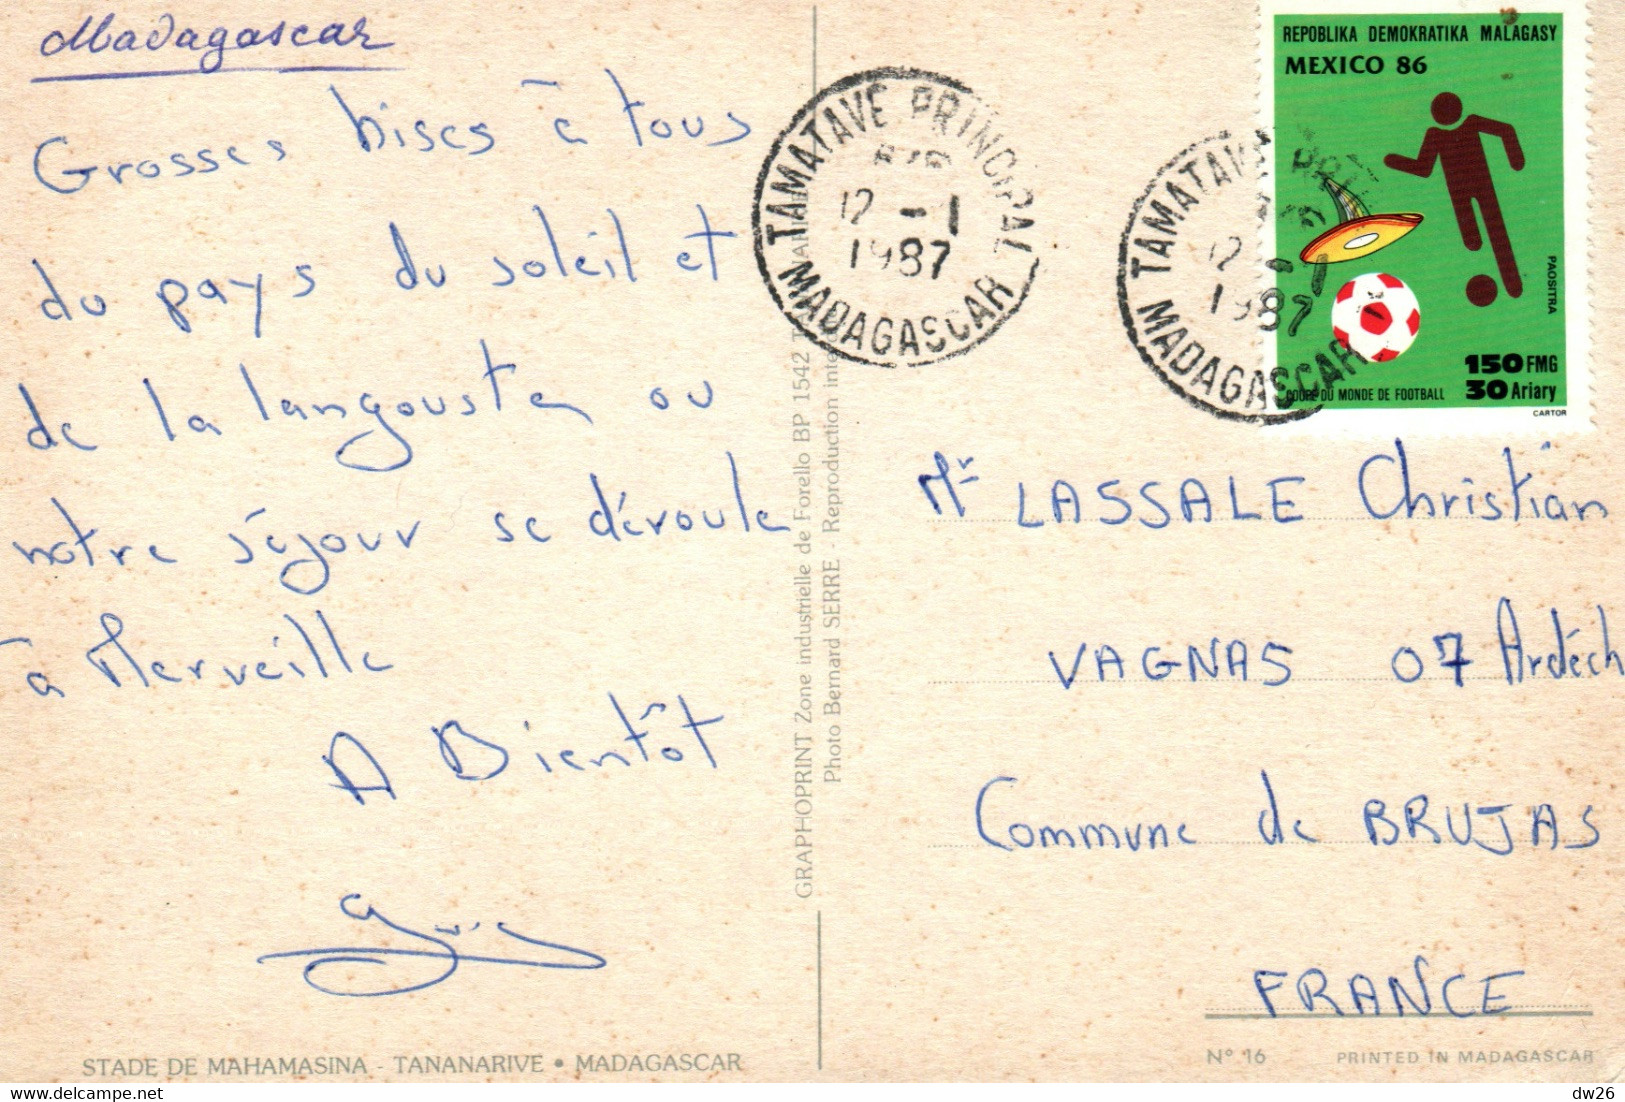 Madagascar
Grosses bises à tous
du pays du soleil et
de la langouste ou
notre séjour se déroule
à Merveille
A Bientôt
STADE DE MAHAMASINA - TANANARIVE • MADAGASCAR
GRAPHOPRINT Zone industrielle de Forello BP 1542
Photo Bernard SERRE - Reproduction
TAMATAVE PRINCIPAL
12 -1
1987
MADAGASCAR
TAMATAVE
12 -1
1987
MADAGASCAR
REPOBLIKA DEMOKRATIKA MALAGASY
MEXICO 86
PAOSITRA
150 FMG
30 Ariary
COUPE DU MONDE DE FOOTBALL
CARTOR
Mr LASSALE Christian
VAGNAS 07 Ardéch
Commune de BRUJAS
FRANCE
N° 16 PRINTED IN MADAGASCAR
dw26